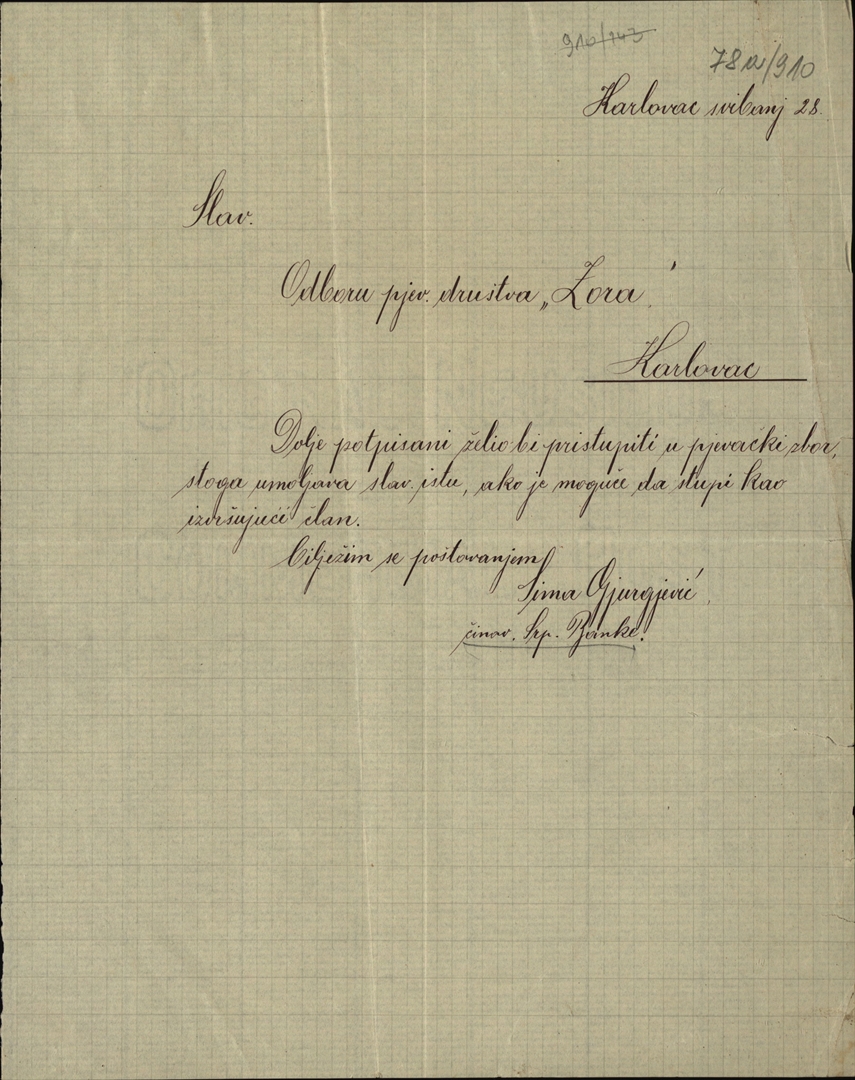 910/143
78a/910
Karlovac svibanj 28.
Slav.
Odboru pjev. društva „Zora".
Karlovac
Dolje potpisani želio bi pristupiti u pjevački zbor,
stoga umoljava slav. istu, ako je moguče da stupi kao
izvršujući član.
Bilježim se poštovanjem
Sima Gjurgjević.
činov. Srp. Banke.